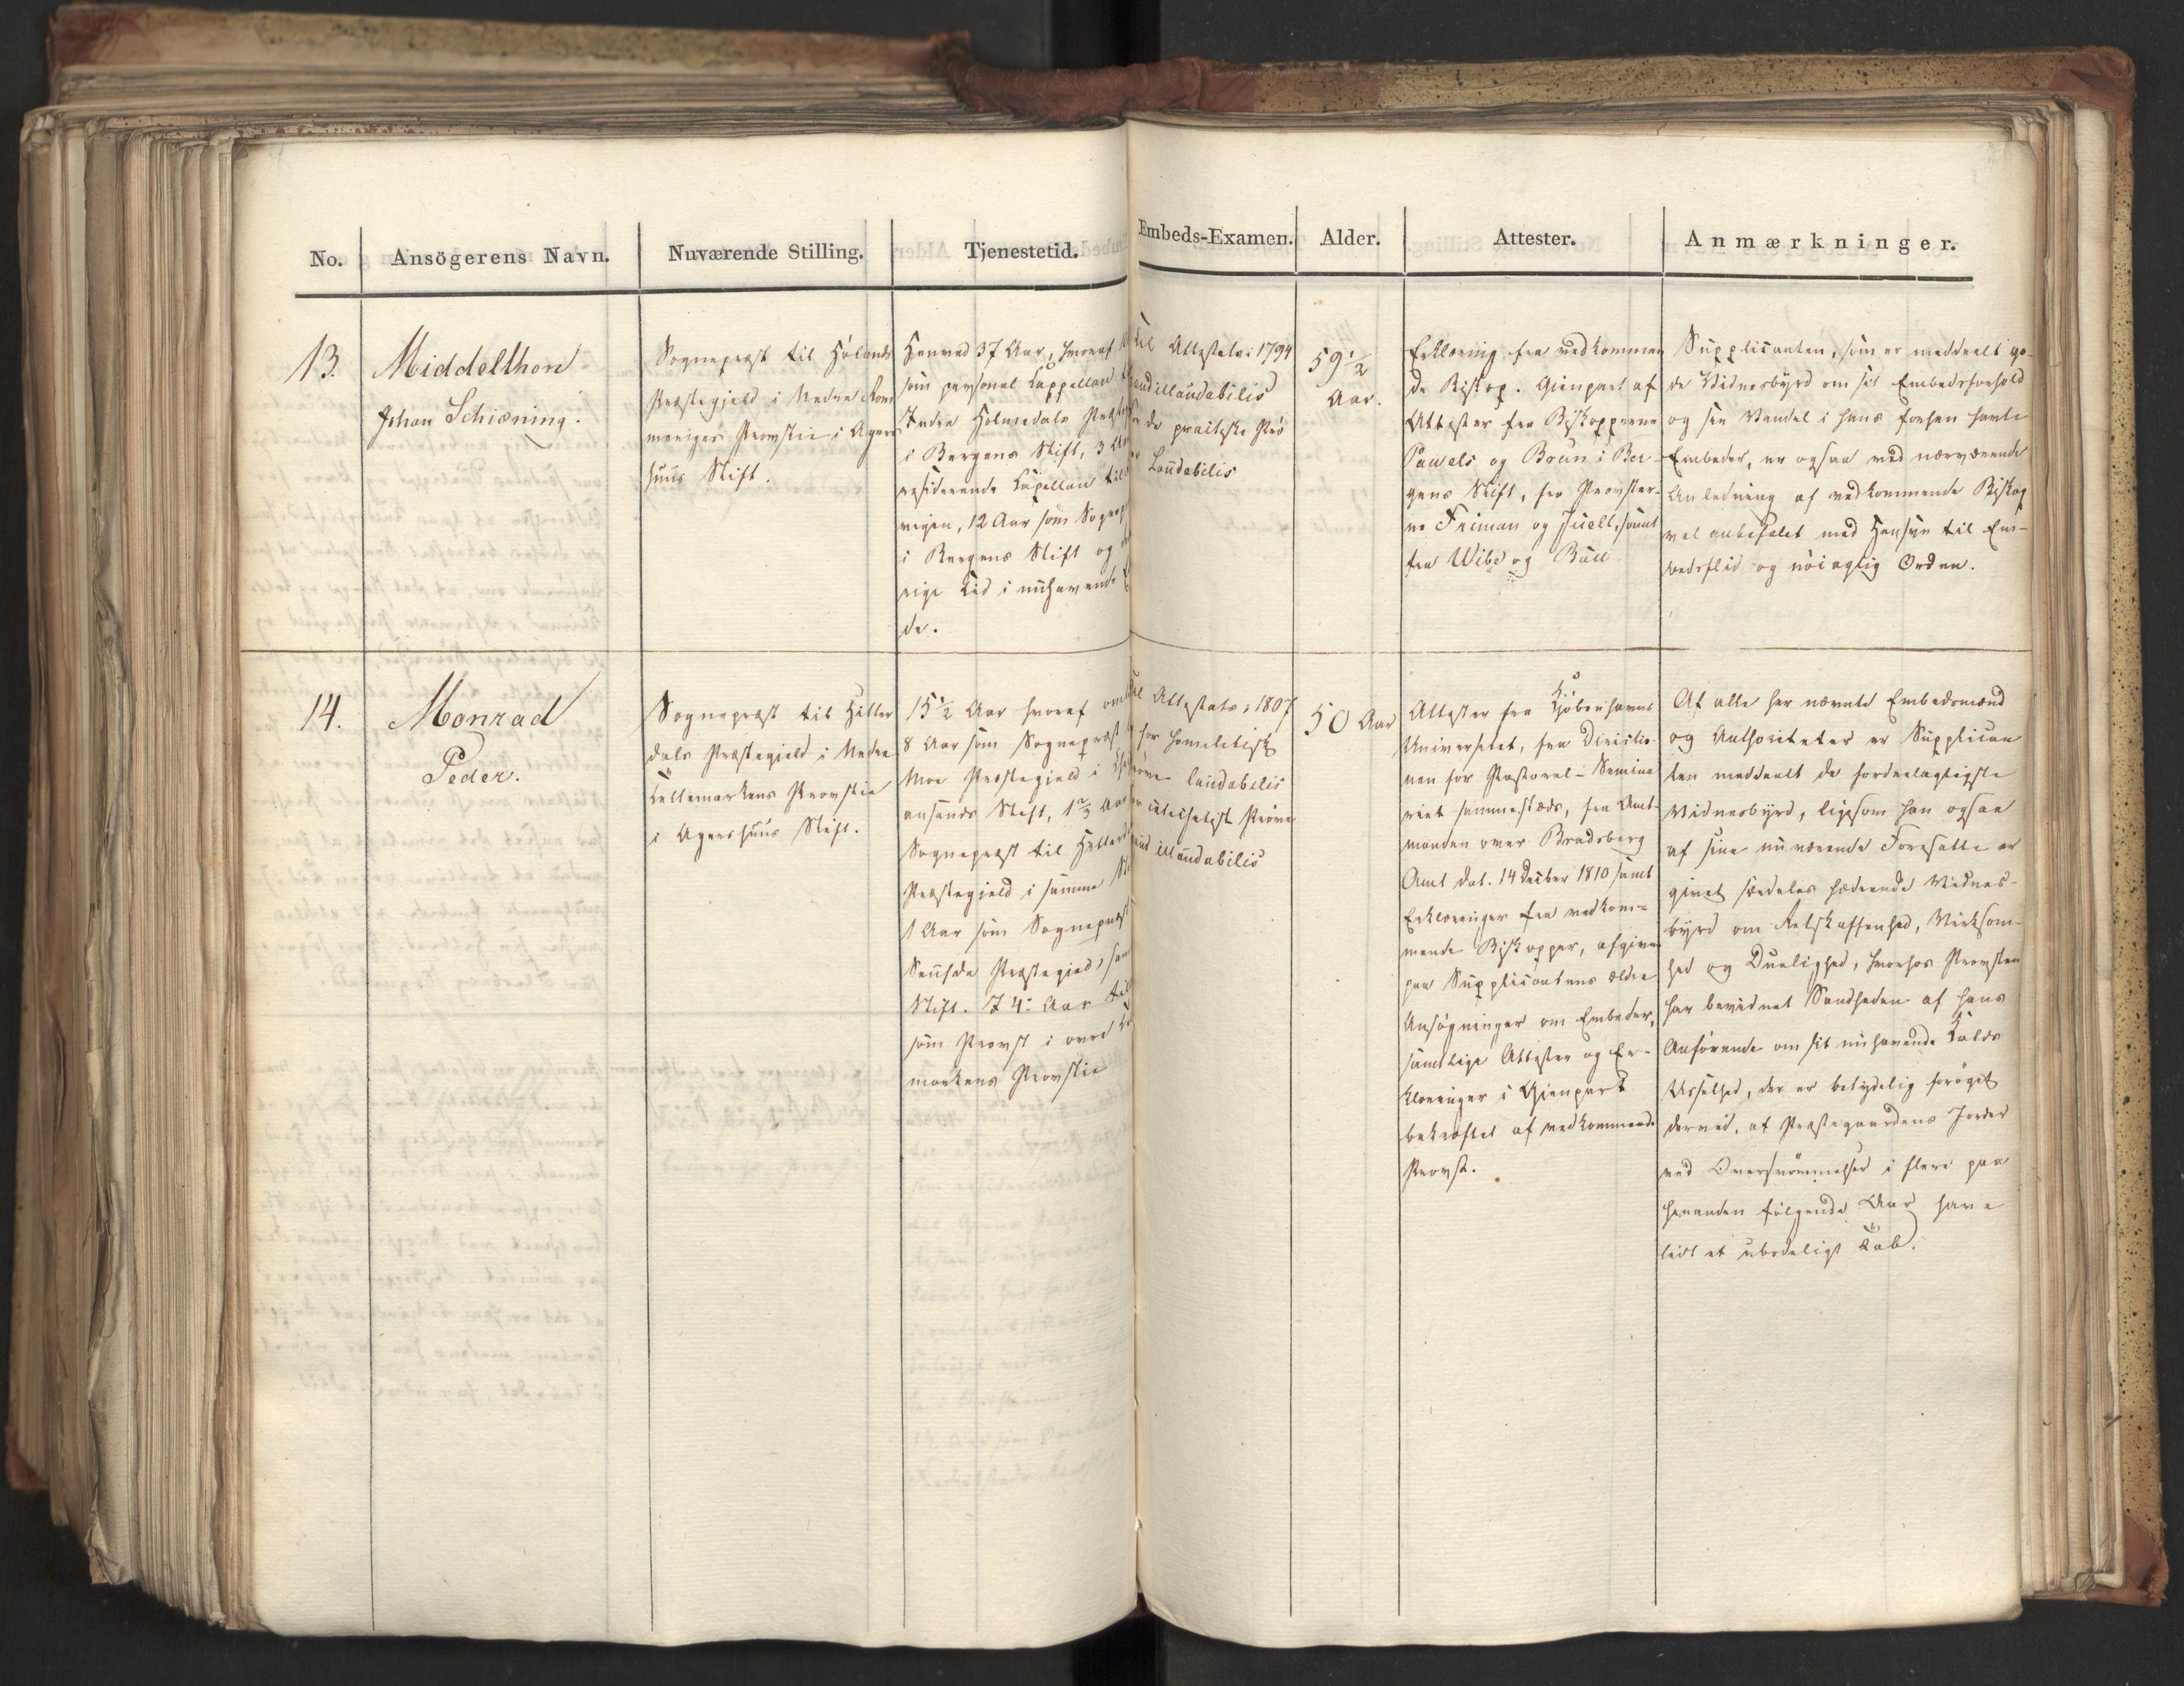 No.
Ansögerens Navn.
Nuværende Stilling.
Tjenestetid.
Embeds-Examen.
Alder.
Attester.
Anmærkninger.
13.
Middelthon
Johan Schiøning.
Sognepræst til Hølands
Præstegjeld i Nedre Rom
meriges Provstie i Agers
huus Stift.
Henved 37 Aar, hvoraf
som personel Cappellan
Indre Holmedals Præst
i Bergens Stift, 3 Aar
residerende Capellan til
vigen, 12 Aar som Sognep
i Bergens Stift og
rige Tid i nuhavende
de.
til Attestats: 1794
haud illaudabilis
de practiske Prö
Laudabilis
59 1/2
Aar.
Erklæring fra vedkommen
de Biskop. Gienpart af
Attester fra Biskopperne
Pavels og Brun i Ber-
gens Stift, fra Provster-
ne Friman og Juell, samt
fra Wibe og Bull
Supplicanten, som er meddeelt go-
de Vidnesbyrd om sit Embedsforhold
og sin Vandel i hans forhen havte
Embeder, er ogsaa ved nærværende
Anledning af vedkommende Biskop
vel anbefalet med Hensyn til Em-
bedsflid og nöiagtig Orden.
14.
Monrad
Peder.
Sognepræst til Hitter
dals Præstegjeld i Nedre
Tellemarkens Provstie
i Agershuus Stift.
15 1/2 Aar hvoraf om
8 Aar som Sognepræst
Moe Præstegjeld i Chri
ansands Stift, 1 2/3 Aar
Sognepræst til Hitter
Præstegjeld i samme
1 Aar som Sognepræst
Præstegjed, sam
Stift. I 4 Aar til
som Provst i övre
markens Provstie
til Attestats: 1807
for homiletisk
Pröve laudabilis
for catechetisk Pröve
haud illaudabilis
50 Aar
Attester fra Kjöbenhavns
Universitet, fra Directio
nen for Pastoral-Semina
riet sammesteds, fra Amt-
manden over Bradsberg
Amt dat. 14 Decbr 1810 samt
Erklæringer fra vedkom-
mende Biskopper, afgivne
paa Supplicantens ældre
Ansögninger om Embeder,
samtlige Attester og Er-
klæringer i Gjenpart
bekræftet af vedkommende
Provst.
Af alle her nævnte Embedsmænd
og Authoriteter er Supplican
ten meddeelt de fordeelagtigste
Vidnesbyrd, ligesom han ogsaa
af sine nu værende Foresatte er
givet særdeles hædrende Vidnes-
byrd om Retskaffenhed, Virksom-
hed og Duelighed, hvorhos Provsten
har bevidnet Sandheden af hans
Anförende om sit nuhavende Kalds
Usselhed, der er betydelig foröget
derved, at Præstegaardens Jorder
ved Oversvömmelser i flere paa
hinanden fölgende Aar have
lidt et ubodeligt Tab.